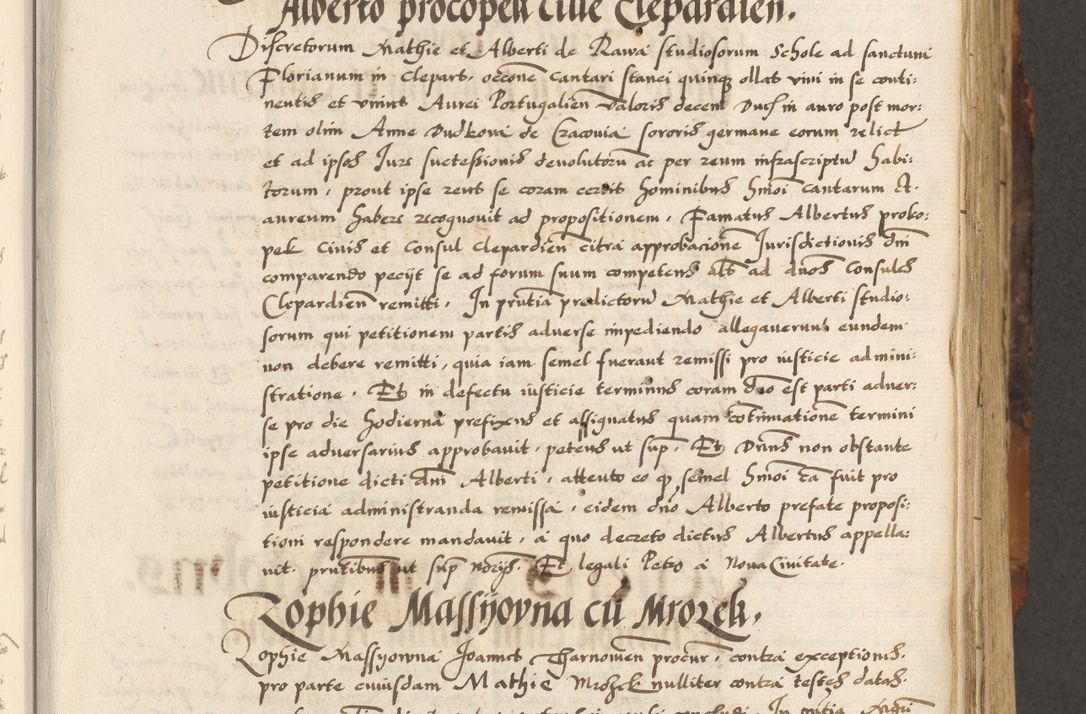 Alberto procopek Cive Cleparđien.
Discretorum Mathie et Alberti de Rawa studiosorum Schole ad sanctum
Florianum in Clepart. occone cantari stanei quinq ollas vini in se conti-
nentis et vnius Aurei Portugalien valoris decem Duc in auro post mor-
tem olim Anne Dudkova de Cracouia sororis germane eorum relict
et ad ipsos Iure successionis devolutoru ac per reum infrascriptu habi-
torum, prout ipse reus se coram certis hominibus hmoi cantarum et
aureum habere recognouit ad propositionem. Famatus Albertus proko-
pek Civis et Consul Clepardien citra approbacione Iurisdictionis dni
comparendo pecijt se ad forum suum competens als ad dnos Consules
Clepardien remitti. In pntia predictoru Mathie et Alberti studio-
sorum qui petitionem partis adverse impediendo allegaverunt eundem
non debere remitti, quia iam semel fuerant remissi pro iusticie admini-
stratione. Et in defectu iusticie terminus coram dno est parti adver-
se pro die hodierna prefixus et assignatus quam continuatione termini
ipse adversarius approbavit, petens ut sup. Et Dnus non obstante
petitione dicti dni Alberti, attento eo q semel hmoi ca fuit pro
iusticia administranda remissa, eidem dno Alberto prefate proposi-
tioni respondere mandavit, a quo decreto dictus Albertus appella-
uit. pntibus ut sup Norijs. Et legali Petro a Nova Civitate.
Zophie Massijovna cu Mrozek.
Zophie Massyowna Joannes Tharnowen procur, contra exceptiones
pro parte cuiusdam Mathie Mrozek nulliter contra testes datas.